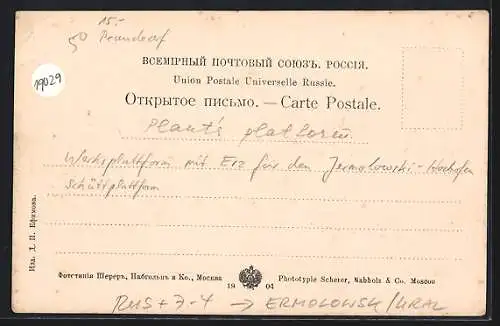 15.-
50
19029
ВСЕМІРНЫЙ ПОЧТОВЫЙ СОЮЗЪ. РОССІЯ.
Union Postale Universelle Russie.
Открытое письмо. — Carte Postale.
Plant's platform
Werksplattform mit Erz für den Jermolowski-Hochofen
Schüttplattform
Изд. Д. П. Ефимова.
Фототипія Шереръ, Набгольцъ и Ко., Москва
19 04
Phototypie Scherer, Nabholz & Co. Moscou
RUS + 7-4 → ERMOLOWSK/URAL